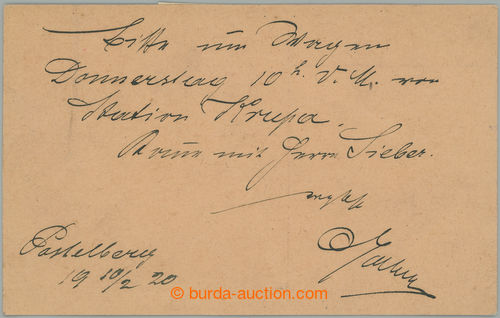 Bitte um Wagen
Donnerstag 10h. V. M. von
Station Krupa.
Komme mit Herrn Sieber.
Postelberg
19 10/2 20
burda-auction.com